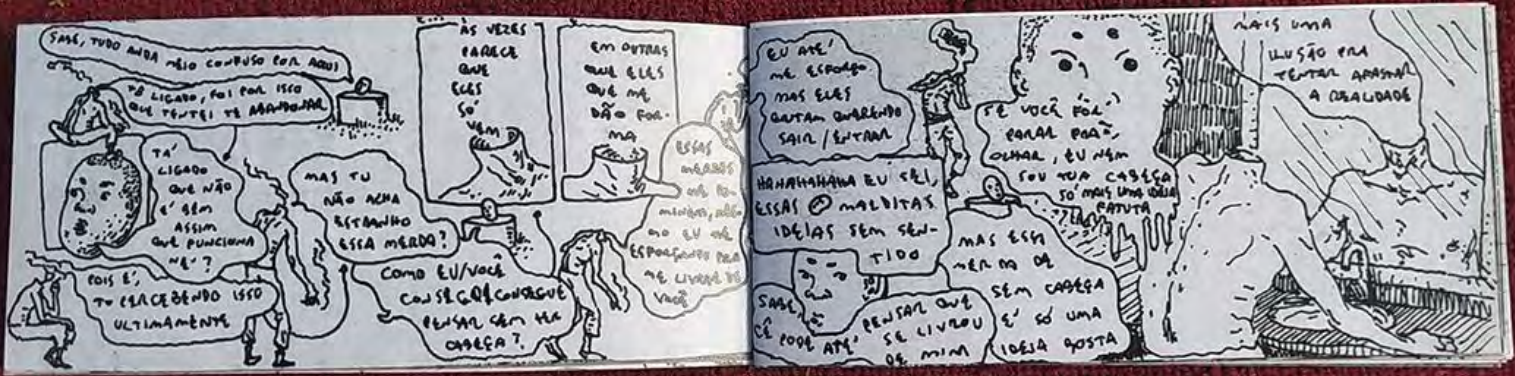 SABE, TUDO ANDA MEIO CONFUSO POR AQUI
TÔ LIGADO, FOI POR ISSO
QUE TENTEI TE ABANDONAR
TÁ
LIGADO
QUE NÃO
É BEM
ASSIM
QUE FUNCIONA
NÉ?
POIS É,
TO PERCEBENDO ISSO
ULTIMAMENTE
MAS TU
NÃO ACHA
ESTRANHO
ESSA MERDA?
COMO EU/VOCÊ
CONSEGUE
PENSAR SEM TER
CABEÇA?
ÀS VEZES
PARECE
QUE
ELES
SÓ
VEM
EM OUTRAS
QUE ELES
QUE ME
DÃO FOR-
MA
ESSAS
MERDAS
ME DO-
MINAM, MES-
MO EU ME
ESFORÇANDO PRA
ME LIVRAR DE
VOCÊ
EU ATÉ
ME ESFORÇO
MAS ELES
QUERENDO
SAIR/ENTRAR
HAHAHAHAHA EU SEI,
ESSAS MALDITAS
IDEIAS SEM SEN-
TIDO
SABE,
CÊ PODE ATÉ
PENSAR QUE
SE LIVROU
DE MIM
SE VOCÊ FOR
PARAR PRA
OLHAR, EU NEM
SOU TUA CABEÇA
SÓ MAIS UMA IDEIA
FATUTA
MAS ESSA
MERDA DE
SEM CABEÇA
É SÓ UMA
IDEIA BOSTA
MAIS UMA
ILUSÃO PRA
TENTAR AFASTAR
A REALIDADE